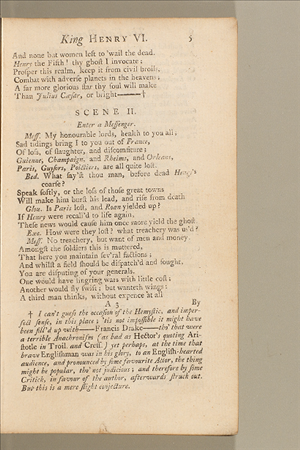 King HENRY VI. 5
And none but women left to 'wail the dead.
Henry the Fifth! thy ghost I invocate;
Prosper this realm, keep it from civil broils,
Combat with adverse planets in the heavens;
A far more glorious star thy soul will make
Than Julius Cæsar, or bright———‡
SCENE II.
Enter a Messenger.
Mess. My honourable lords, health to you all;
Sad tidings bring I to you out of France,
Of loss, of slaughter, and discomfiture;
Guienne, Champaign, and Rheims, and Orleans,
Paris, Guysors, Poictiers, are all quite lost.
Bed. What say'st thou man, before dead Henry's
coarse?
Speak softly, or the loss of those great towns
Will make him burst his lead, and rise from death
Glou. Is Paris lost, and Roan yielded up?
If Henry were recall'd to life again,
These news would cause him once more yield the ghost.
Exe. How were they lost? what treachery was us'd?
Mess. No treachery, but want of men and money.
Amongst the soldiers this is muttered,
That here you maintain sev'ral factions;
And whilst a field should be dispatch'd and fought,
You are disputing of your generals.
One would have lingring wars with little cost;
Another would fly swift; but wanteth wings:
A third man thinks, without expence at all
A 3 By
‡ I can't guess the occasion of the Hemystic, and imper-
fect sense, in this place; 'tis not impossible it might have
been fill'd up with———Francis Drake———tho' that were
a terrible Anachronism (as bad as Hector's quoting Ari-
stotle in Troil. and Cress.) yet perhaps, at the time that
brave Englishman was in his glory, to an English-hearted
audience, and pronounced by some favourite Actor, the thing
might be popular, tho' not judicious; and therefore by some
Critick, in favour of the author, afterwards struck out.
But this is a mere slight conjecture.